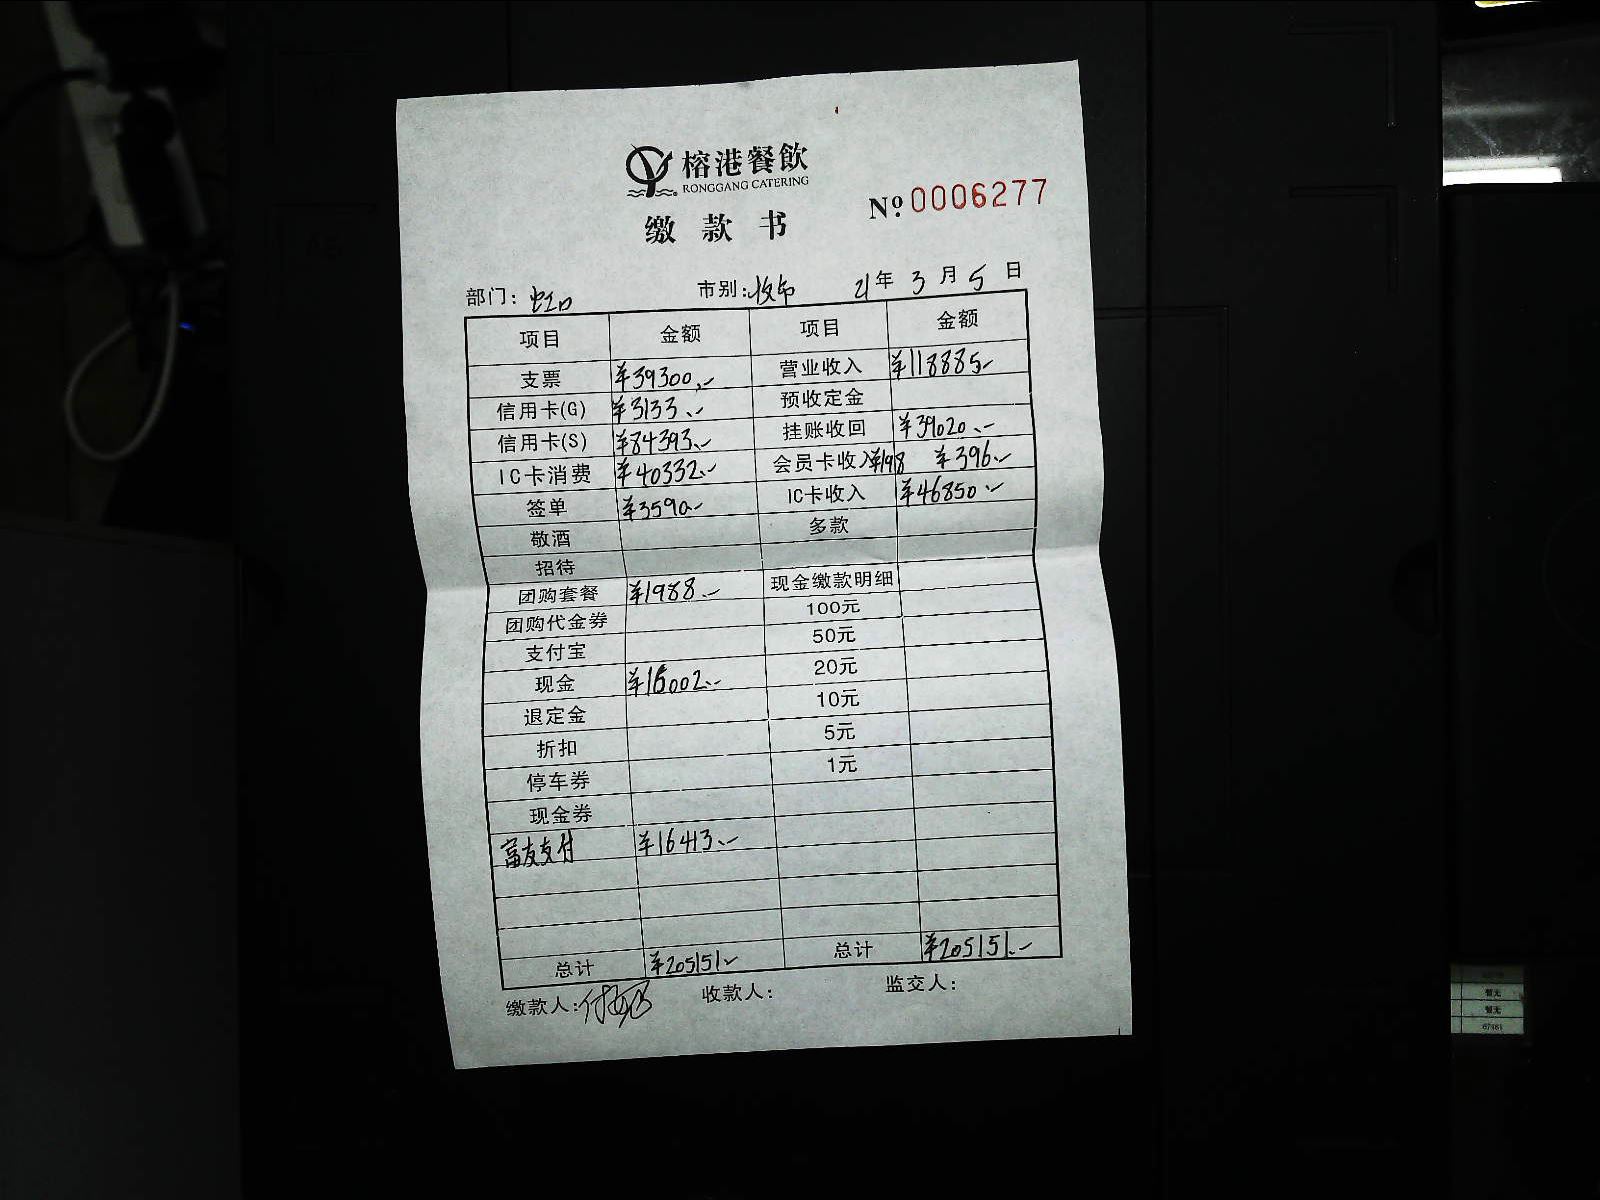 榕港餐飲
RONGGANG CATERING
缴款书
№ 0006277
部门: 虹口 市别: 21年 3月 5日
项目 金额 项目 金额
支票 ¥39300.- 营业收入 ¥118885.-
信用卡(G) ¥3133.- 预收定金
信用卡(S) ¥84393.- 挂账收回 ¥39020.-
IC卡消费 ¥40332.- 会员卡收入 ¥198 ¥396.-
签单 ¥3590.- IC卡收入 ¥46850.-
敬酒 多款
招待
团购套餐 ¥1988.- 现金缴款明细
团购代金券 100元
支付宝 50元
现金 ¥16002.- 20元
退定金 10元
折扣 5元
停车券 1元
现金券
富友支付 ¥16413.-
总计 ¥205151.- 总计 ¥205151.-
缴款人: 收款人: 监交人:
暂无
暂无